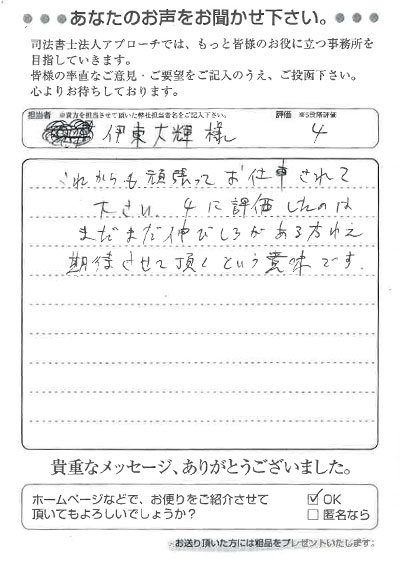 あなたのお声をお聞かせ下さい。
司法書士法人アプローチでは、もっと皆様のお役に立つ事務所を
目指していきます。
皆様の率直なご意見・ご要望をご記入のうえ、ご投函下さい。
心よりお待ちしております。
担当者 ※貴方を担当させて頂いた弊社担当者名をご記入下さい。 評価 ※5段階評価
伊東大輝 様 4
これからも頑張ってお仕事されて
下さい。4に評価したのは
まだまだ伸びしろがある方ゆえ
期待させて頂くという意味です。
貴重なメッセージ、ありがとうございました。
ホームページなどで、お便りをご紹介させて
頂いてもよろしいでしょうか？
☑ OK
□ 匿名なら
お送り頂いた方には粗品をプレゼントいたします。